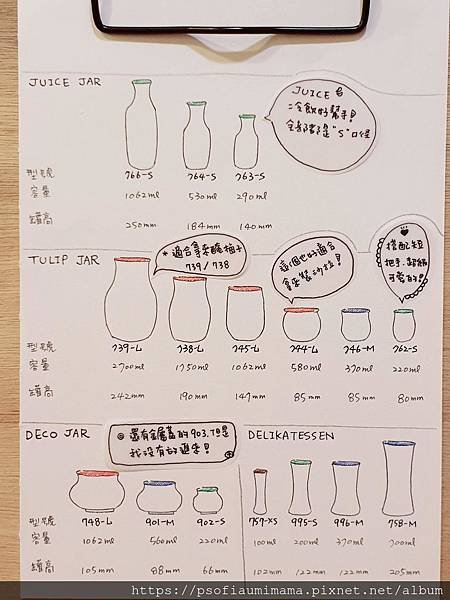 JUICE JAR
JUICE
冷飲好幫手!
全部都是"S"口徑
型號 766-S 764-S 763-S
容量 1062ml 530ml 290ml
罐高 250mm 184mm 140mm
TULIP JAR
*適合拿來醃柚子
739/738
這個也好適合
拿來裝沙拉!
搭配短
把手,超級
可愛的!
型號 739-L 738-L 745-L 744-L 746-M 762-S
容量 2700ml 1750ml 1062ml 580ml 370ml 220ml
罐高 242mm 190mm 147mm 85mm 85mm 80mm
DECO JAR
◎還有金屬蓋的903,但是
我沒有的選手!
DELIKATESSEN
型號 748-L 901-M 902-S
容量 1062ml 560ml 220ml
罐高 105mm 88mm 66mm
757-XS 995-S 996-M 758-M
100ml 200ml 370ml 700ml
102mm 122mm 122mm 205mm
https://psofiaumimama.pixnet.net/album